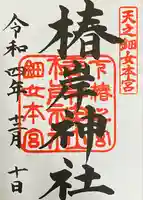 天之鈿女本宮
椿岸神社
令和四年十二月十日
鈿女本宮